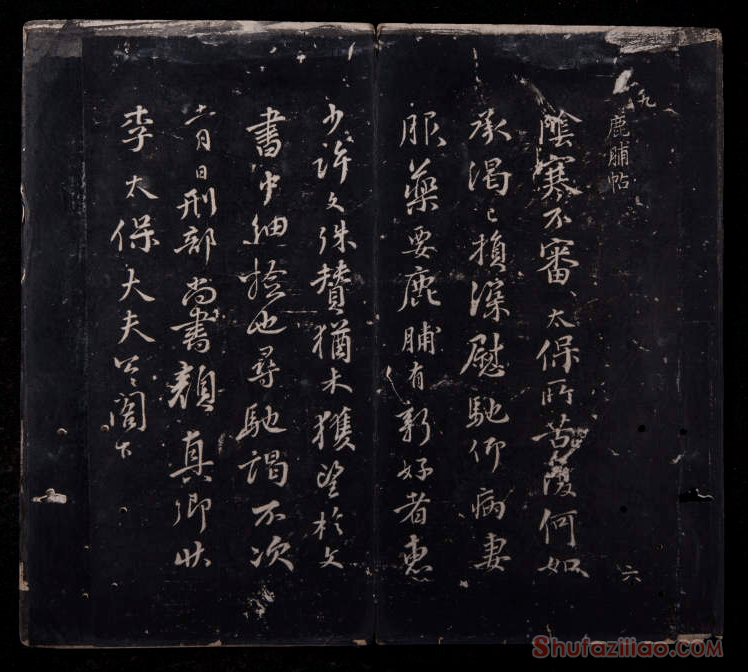 九
鹿脯帖
陰寒不審太保所苦復何如
承渴已損深慰馳仰病妻
服藥要鹿脯有新好者惠
少許文殊贊猶未獲望於文
書中細撿也尋馳謁不次
十一月日刑部尚書顏真卿狀
李太保大夫公閣下
六
Shufaziliao.com